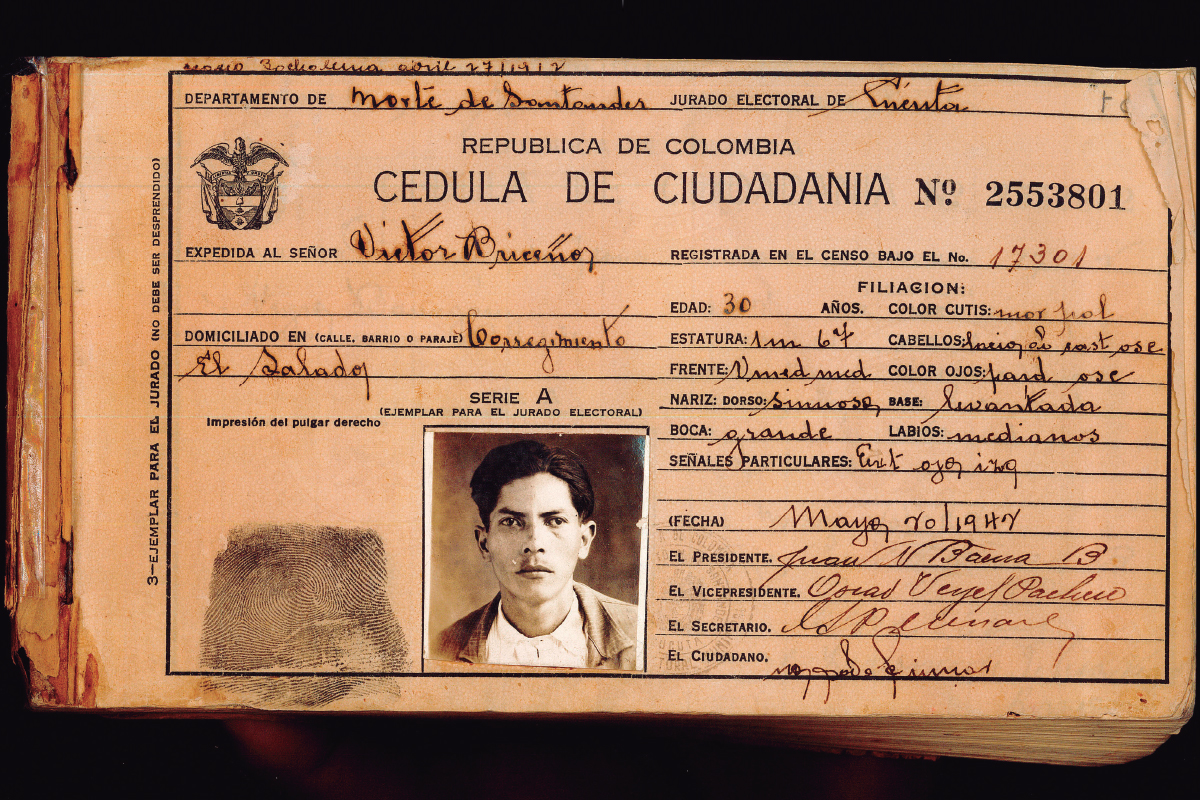 Bochalema abril 27/1912
DEPARTAMENTO DE Norte de Santander JURADO ELECTORAL DE Cúcuta
REPUBLICA DE COLOMBIA
CEDULA DE CIUDADANIA Nº 2553801
EXPEDIDA AL SEÑOR Victor Briceño REGISTRADA EN EL CENSO BAJO EL No. 17301
FILIACION:
EDAD: 30 AÑOS. COLOR CUTIS: mor
DOMICILIADO EN (CALLE, BARRIO O PARAJE) Corregimiento
El Salado
ESTATURA: 1m 67 CABELLOS: lacio cast osc
FRENTE: med med COLOR OJOS: pard osc
NARIZ: DORSO: sinuoso BASE: levantada
BOCA: grande LABIOS: medianos
SEÑALES PARTICULARES: ojo izq
SERIE A
(EJEMPLAR PARA EL JURADO ELECTORAL)
Impresión del pulgar derecho
(FECHA) Mayo 20/1942
EL PRESIDENTE. Juan N Baena B
EL VICEPRESIDENTE. Oscar Vergel Pacheco
EL SECRETARIO.
EL CIUDADANO. no pudo firmar
3-EJEMPLAR PARA EL JURADO (NO DEBE SER DESPRENDIDO)